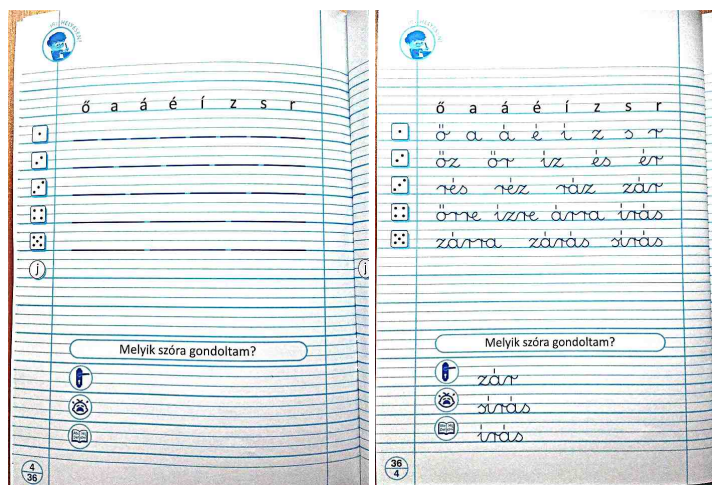 ő a á é í z s r
j
Melyik szóra gondoltam?
4
36
ő a á é í z s r
ő a á é í z s r
őz őr íz és ér
rés réz ráz zár
őrre ízre árra írás
zárra zárás sírás
j
Melyik szóra gondoltam?
zár
sírás
írás
36
4